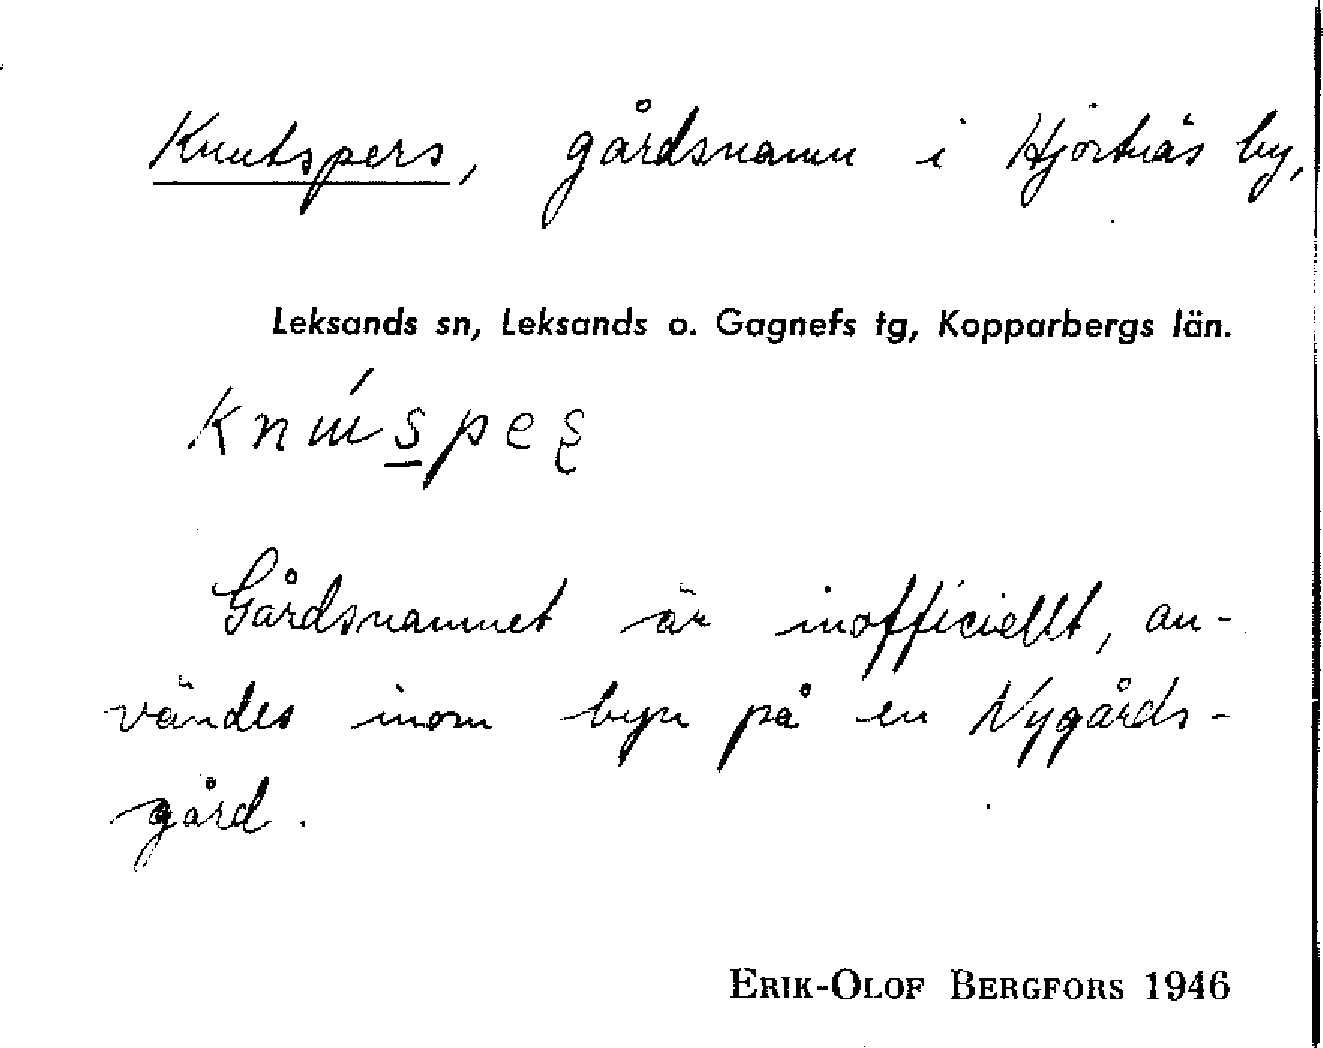 Knutspers, gårdsnamn i Hjortnäs by,
Leksands sn, Leksands o. Gagnefs tg, Kopparbergs län.
Gårdsnamnet är inofficiellt, an-
vändes inom byn på en Nygårds-
gård.
ERIK-OLOF BERGFORS 1946